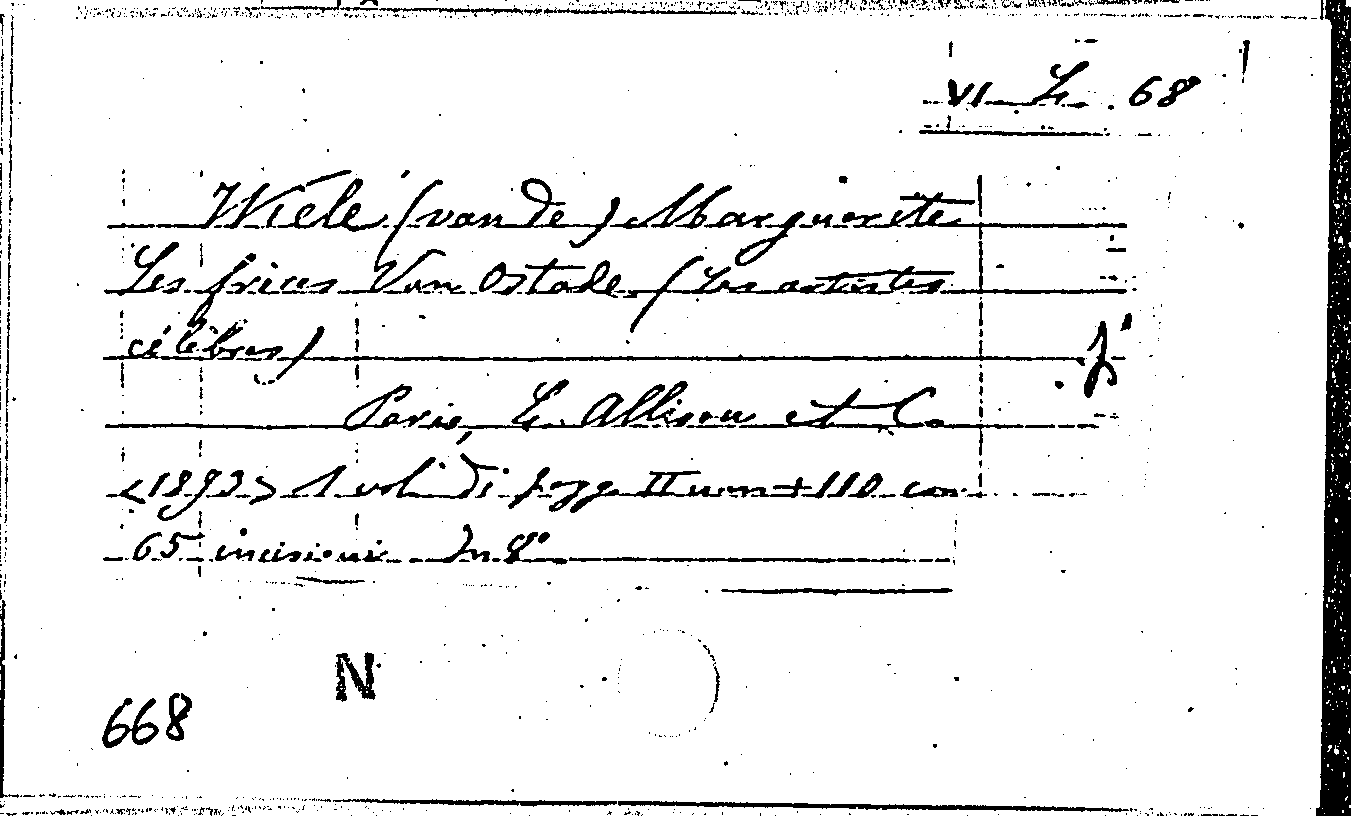 VI L. 68
Wiele (van de) Marguerite
Les frères Van Ostade. (Les artistes
célèbres)
Paris, L. Allison et C.
<1893> 1 vol. di pagg. II nn + 110 con
65 incisioni In 8°
N
668